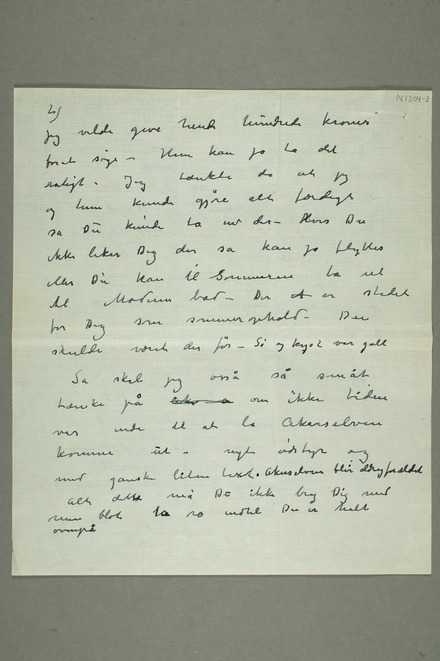 N1204-2
2)
Jeg vilde give hende hundrede kroner
for at søge – Hun kan jo ta det
roligt – Jeg tænkte da at jeg
og hun kunde gjøre alt færdigt
så Du kunde ta ud der – Hvis Du
ikke liker Dig der så kan jo flyttes
eller Du kan til Sommeren ta ud
til Modums bad – Der er stedet
for Dig som sommerophold – Du
skulde været der før – Så og kysst var galt
Så skal jeg også så småt
tænke på om ikke tiden
var inde til at la Akerselven
komme ut – nyt udstyr og
med ganske liten text. Akerselven blir aldrig forældet
alt dette må Du ikke bry Dig med
men blot ta ro indtil Du er helt
ovenpå